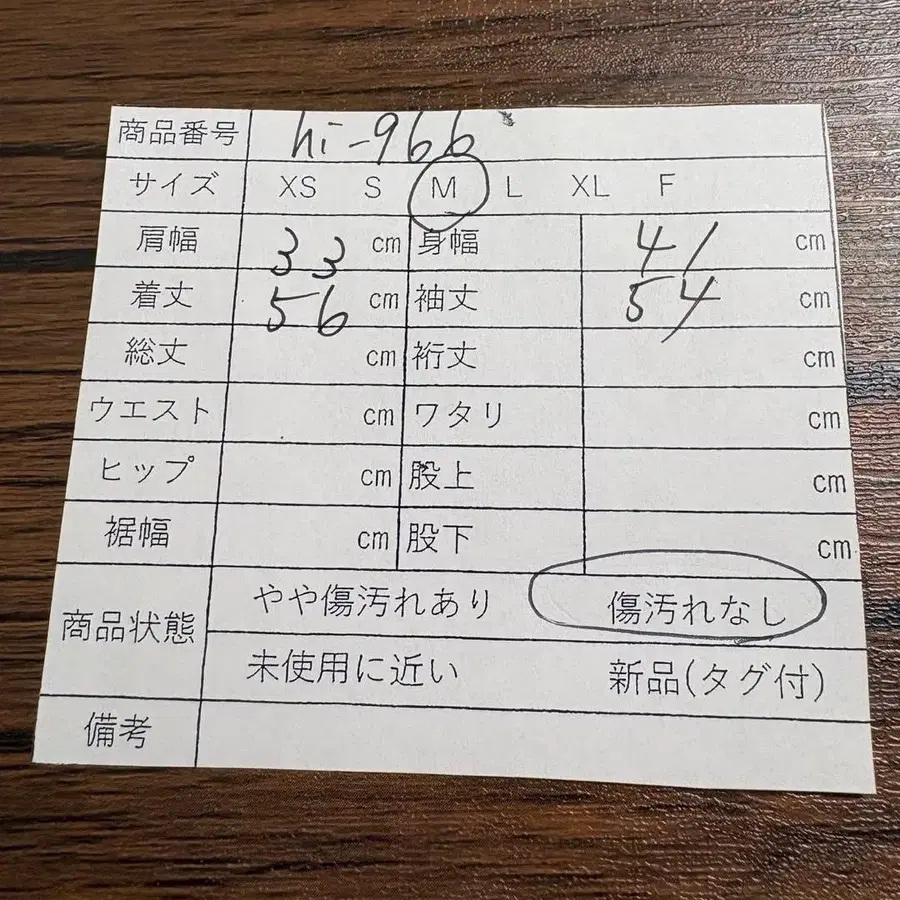 商品番号 hi-966
サイズ XS S M L XL F
肩幅 33 cm 身幅 41 cm
着丈 56 cm 袖丈 54 cm
総丈 cm 裄丈 cm
ウエスト cm ワタリ cm
ヒップ cm 股上 cm
裾幅 cm 股下 cm
商品状態 やや傷汚れあり 傷汚れなし
未使用に近い 新品(タグ付)
備考